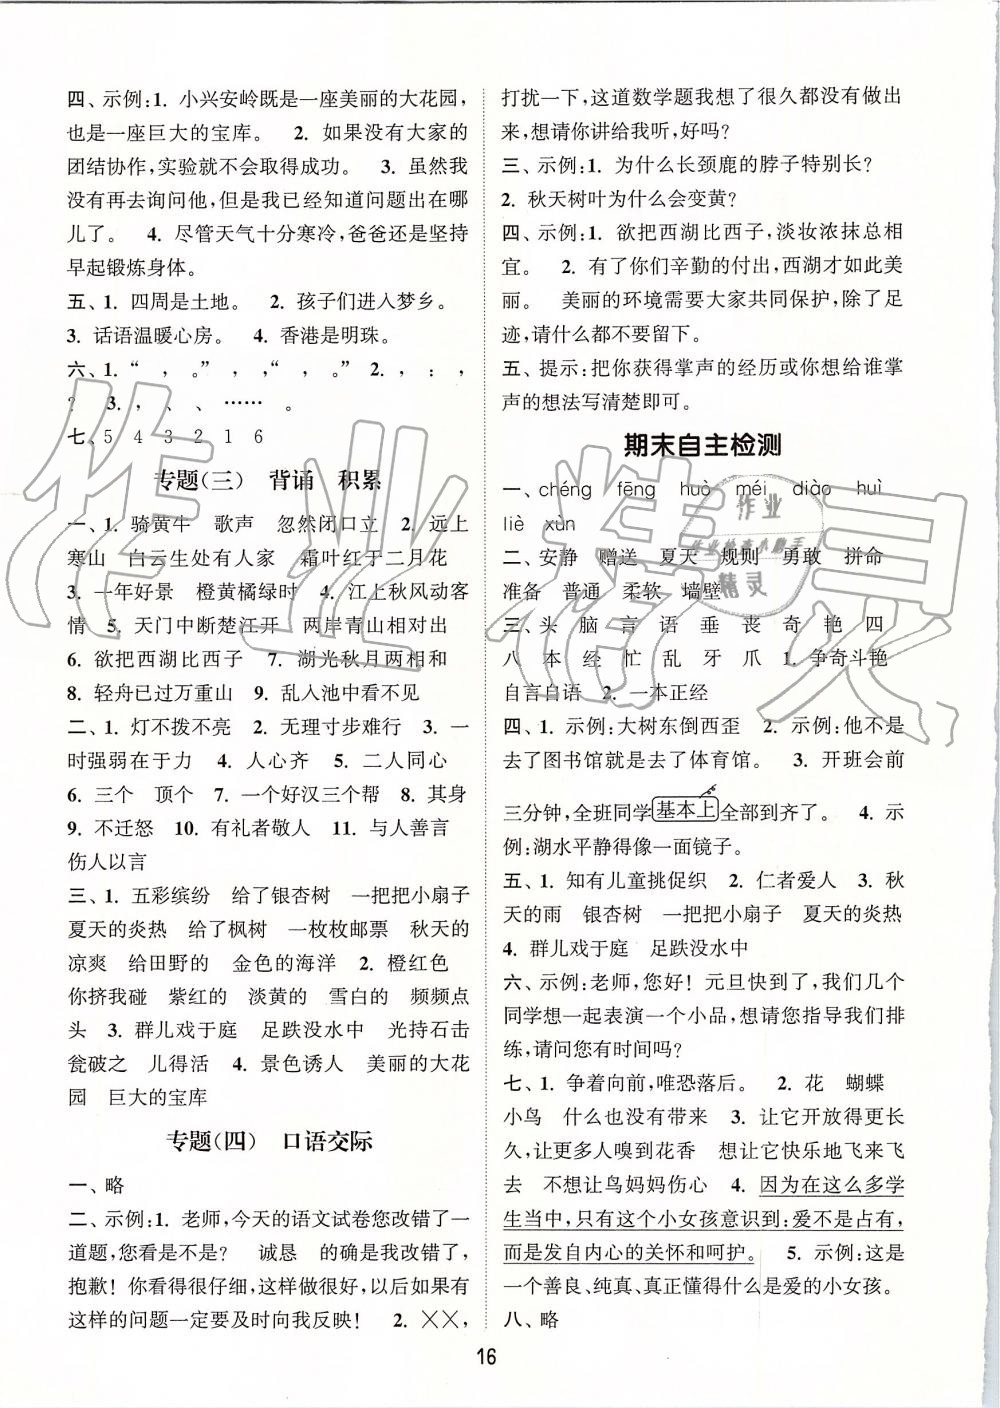 四、示例:1. 小兴安岭既是一座美丽的大花园,
也是一座巨大的宝库。 2. 如果没有大家的
团结协作,实验就不会取得成功。 3. 虽然我
没有再去询问他,但是我已经知道问题出在哪
儿了。 4. 尽管天气十分寒冷,爸爸还是坚持
早起锻炼身体。
五、1. 四周是土地。 2. 孩子们进入梦乡。
3. 话语温暖心房。 4. 香港是明珠。
六、1. “ , 。” , ,“ , 。” 2. , : ,
? 3. , 、 、 …… 。
七、5 4 3 2 1 6
专题(三) 背诵 积累
一、1. 骑黄牛 歌声 忽然闭口立 2. 远上
寒山 白云生处有人家 霜叶红于二月花
3. 一年好景 橙黄橘绿时 4. 江上秋风动客
情 5. 天门中断楚江开 两岸青山相对出
6. 欲把西湖比西子 7. 湖光秋月两相和
8. 轻舟已过万重山 9. 乱入池中看不见
二、1. 灯不拨不亮 2. 无理寸步难行 3. 一
时强弱在于力 4. 人心齐 5. 二人同心
6. 三个 顶个 7. 一个好汉三个帮 8. 其身
9. 不迁怒 10. 有礼者敬人 11. 与人善言
伤人以言
三、1. 五彩缤纷 给了银杏树 一把把小扇子
夏天的炎热 给了枫树 一枚枚邮票 秋天的
凉爽 给田野的 金色的海洋 2. 橙红色
你挤我碰 紫红的 淡黄的 雪白的 频频点
头 3. 群儿戏于庭 足跌没水中 光持石击
瓮破之 儿得活 4. 景色诱人 美丽的大花
园 巨大的宝库
专题(四) 口语交际
一、略
二、示例:1. 老师,今天的语文试卷您改错了一
道题,您看是不是? 诚恳 的确是我改错了,
抱歉!你看得很仔细,这样做很好,以后如果有
这样的问题一定要及时向我反映! 2. ××,
打扰一下,这道数学题我想了很久都没有做出
来,想请你讲给我听,好吗?
三、示例:1. 为什么长颈鹿的脖子特别长?
2. 秋天树叶为什么会变黄?
四、示例:1. 欲把西湖比西子,淡妆浓抹总相
宜。 2. 有了你们辛勤的付出,西湖才如此美
丽。 美丽的环境需要大家共同保护,除了足
迹,请什么都不要留下。
五、提示:把你获得掌声的经历或你想给谁掌
声的想法写清楚即可。
期末自主检测
一、chéng fēng huò méi diào huì
liè xùn
二、安静 赠送 夏天 规则 勇敢 拼命
准备 普通 柔软 墙壁
三、头 脑 言 语 垂 丧 奇 艳 四
八 本 经 忙 乱 牙 爪 1. 争奇斗艳
自言自语 2. 一本正经
四、1. 示例:大树东倒西歪 2. 示例:他不是
去了图书馆就是去了体育馆。 3. 开班会前
三分钟,全班同学基本上全部到齐了。 4. 示
例:湖水平静得像一面镜子。
五、1. 知有儿童挑促织 2. 仁者爱人 3. 秋
天的雨 银杏树 一把把小扇子 夏天的炎热
4. 群儿戏于庭 足跌没水中
六、示例:老师,您好!元旦快到了,我们几个
同学想一起表演一个小品,想请您指导我们排
练,请问您有时间吗?
七、1. 争着向前,唯恐落后。 2. 花 蝴蝶
小鸟 什么也没有带来 3. 让它开放得更长
久,让更多人嗅到花香 想让它快乐地飞来飞
去 不想让鸟妈妈伤心 4. 因为在这么多学
生当中,只有这个小女孩意识到:爱不是占有,
而是发自内心的关怀和呵护。 5. 示例:这是
一个善良、纯真、真正懂得什么是爱的小女孩。
八、略
16
作业精灵
作业
作业检查小助手
精灵